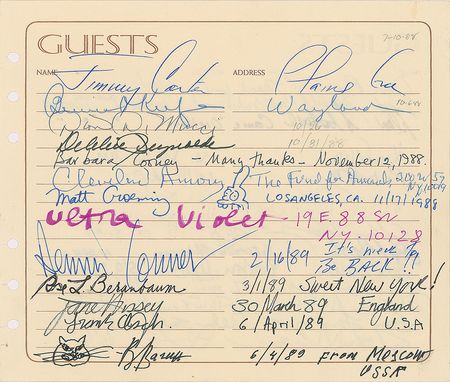 GUESTS
7-10-88
NAME ADDRESS
Jimmy Carter Plains Ga
Wayland 10-6-88
10/86
10/21/88
Barbara Cooney - Many thanks - November 12, 1988.
Cleveland Amory The Fund for Animals 200 W 57
NY, 10019
Matt Groening LOS ANGELES, CA. 11/17/1988
Ultra Violet - 19 E. 88 St
NY. 10128
2/16/89 It's nice to
Be BACK!!
Rose L Beranbaum 3/1/89 Sweet New York!
Jane Hissey 30 March 89 England
Frank Asch. 6 April/89 U.S.A
6/4/89 from Moscow
USSR